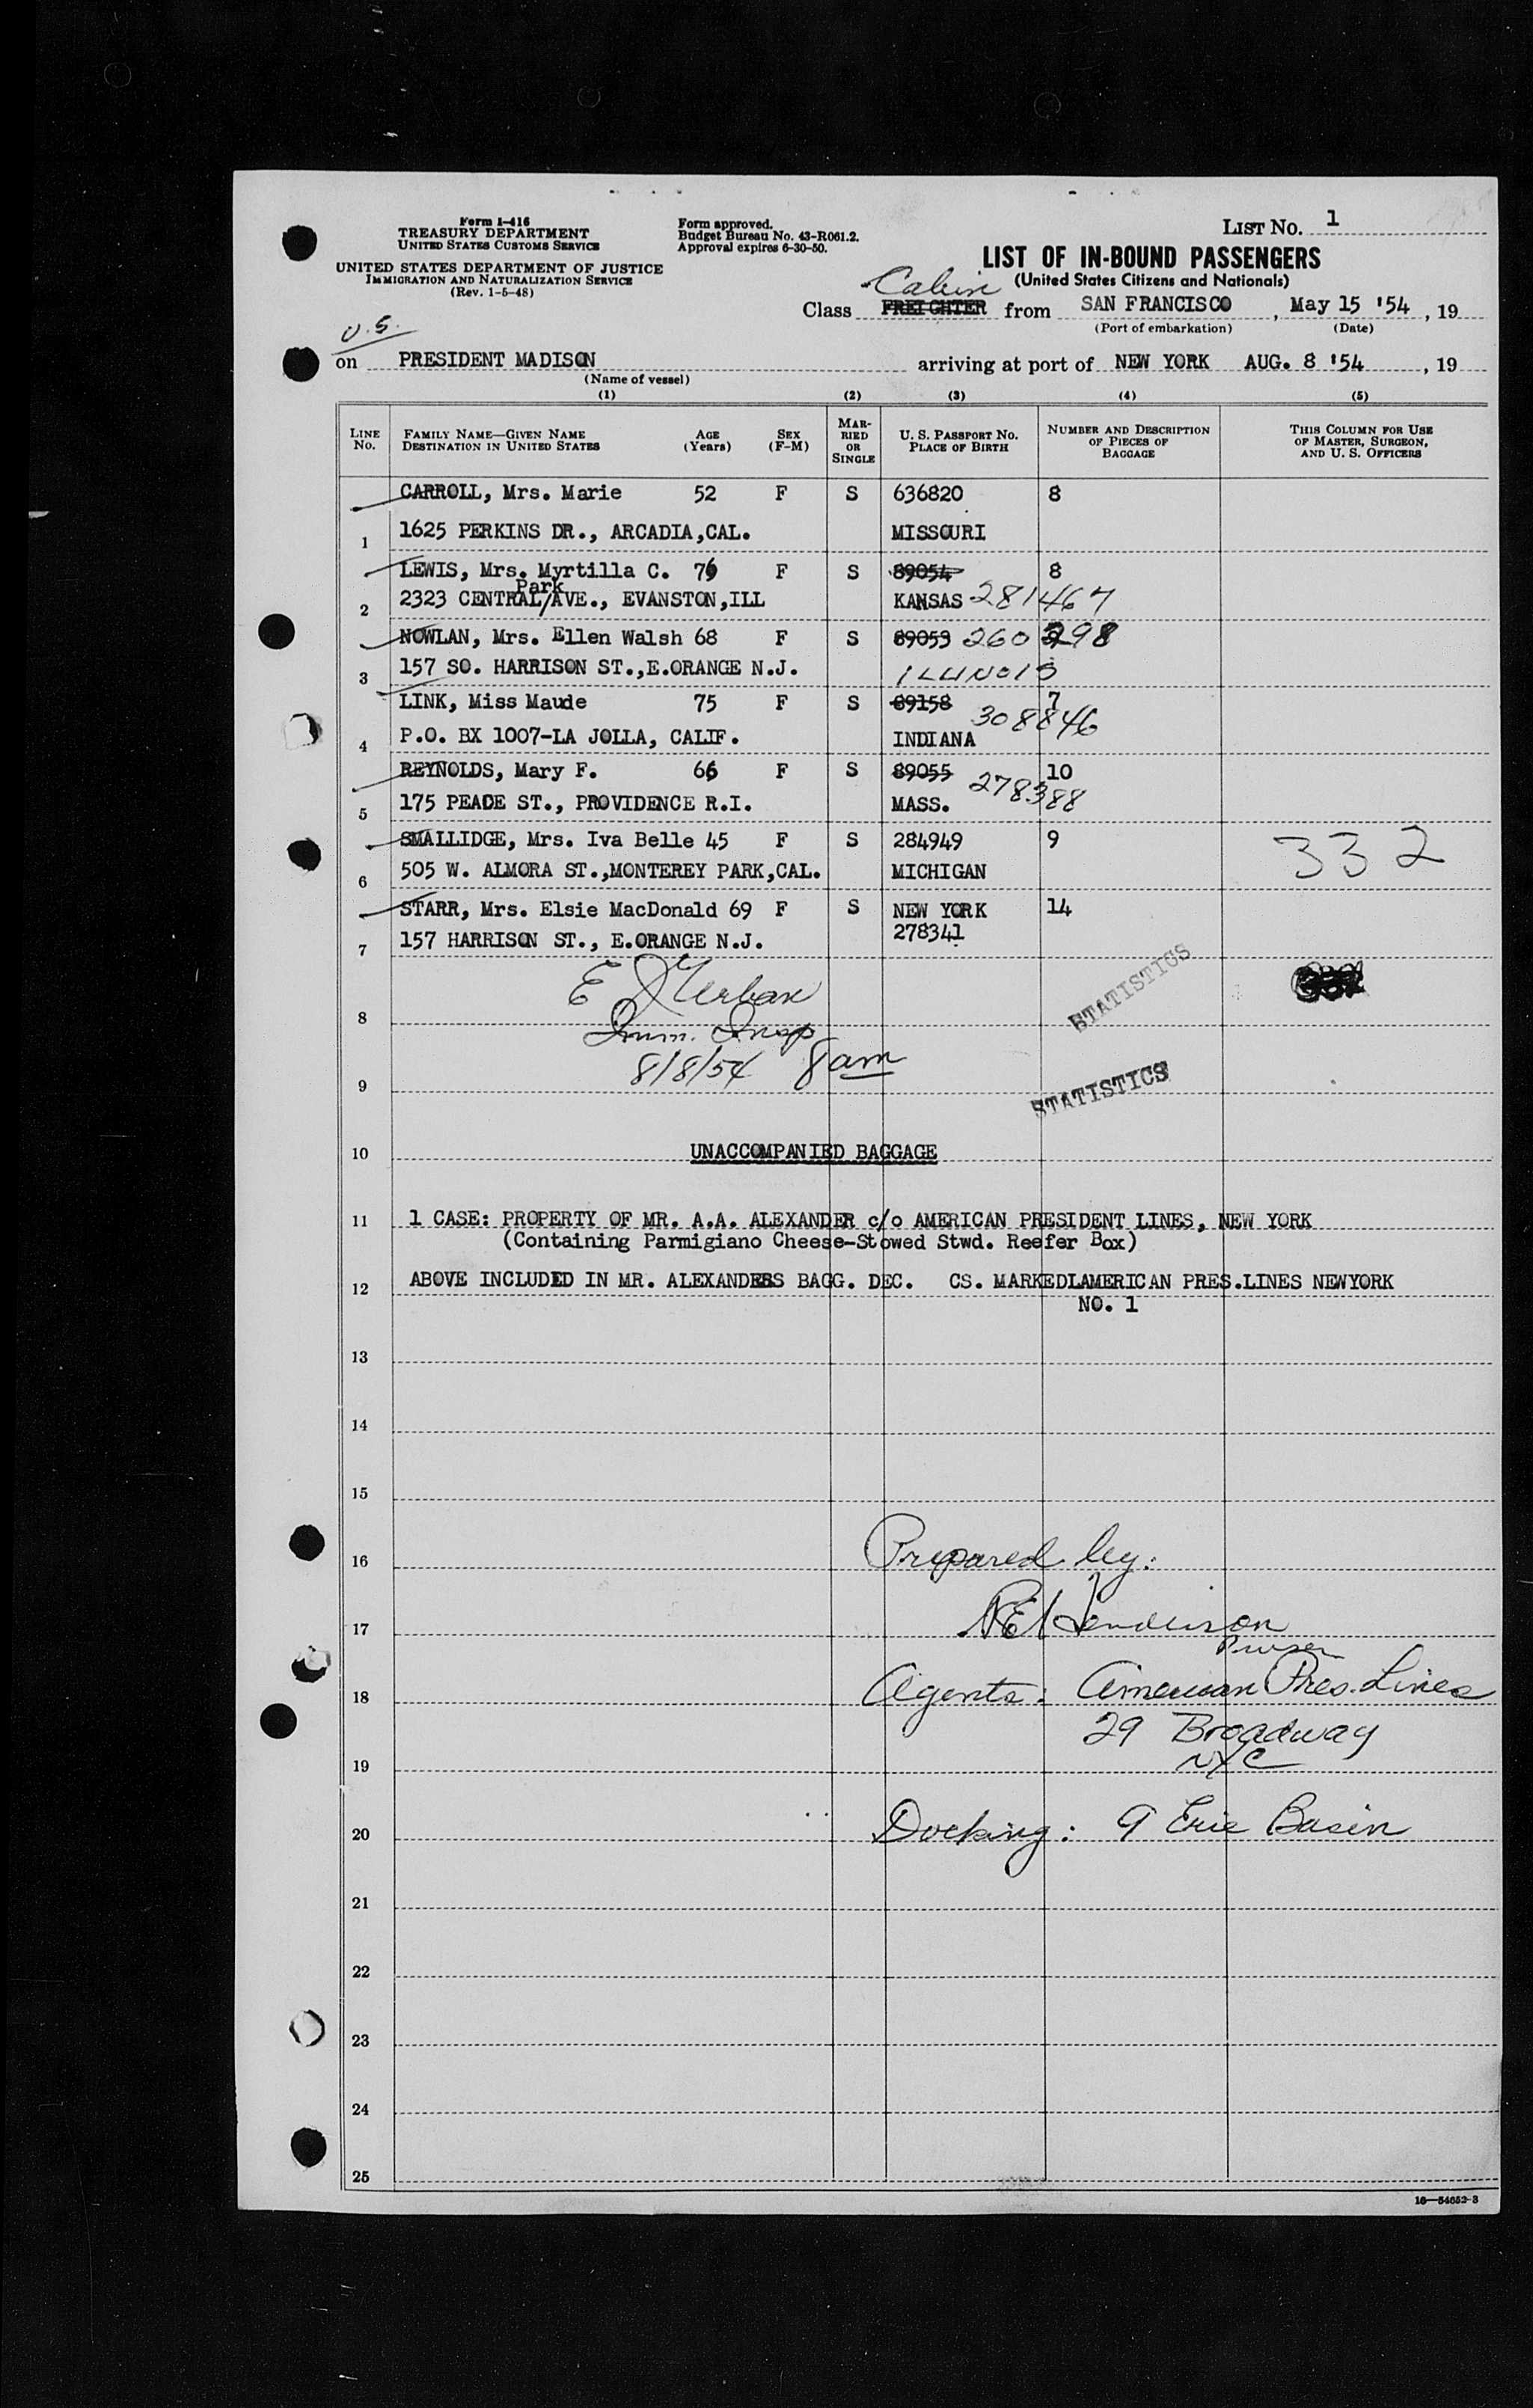 Form I-416
TREASURY DEPARTMENT
UNITED STATES CUSTOMS SERVICE
UNITED STATES DEPARTMENT OF JUSTICE
IMMIGRATION AND NATURALIZATION SERVICE
(Rev. 1-5-48)
Form approved.
Budget Bureau No. 43-R061.2.
Approval expires 6-30-50.
LIST NO. 1
LIST OF IN-BOUND PASSENGERS
(United States Citizens and Nationals)
Cabin
Class FREIGHTER from SAN FRANCISCO, May 15 '54, 19
(Port of embarkation) (Date)
U.S.
on PRESIDENT MADISON arriving at port of NEW YORK AUG. 8 '54, 19
(Name of vessel)
(1) (2) (3) (4) (5)
LINE NO. FAMILY NAME—GIVEN NAME DESTINATION IN UNITED STATES AGE (Years) SEX (F-M) MARRIED OR SINGLE U. S. PASSPORT NO. PLACE OF BIRTH NUMBER AND DESCRIPTION OF PIECES OF BAGGAGE THIS COLUMN FOR USE OF MASTER, SURGEON, AND U. S. OFFICERS
CARROLL, Mrs. Marie 52 F S 636820 8
1 1625 PERKINS DR., ARCADIA,CAL. MISSOURI
LEWIS, Mrs. Myrtilla C. 76 F S 89054 8
Park
2 2323 CENTRAL/AVE., EVANSTON,ILL KANSAS 281467
NOWLAN, Mrs. Ellen Walsh 68 F S 89053 260298
3 157 SO. HARRISON ST.,E.ORANGE N.J. ILLINOIS
LINK, Miss Maude 75 F S 89158 7
308846
4 P.O. BX 1007-LA JOLLA, CALIF. INDIANA
REYNOLDS, Mary F. 66 F S 89055 10
278388
5 175 PEADE ST., PROVIDENCE R.I. MASS.
SMALLIDGE, Mrs. Iva Belle 45 F S 284949 9
332
6 505 W. ALMORA ST.,MONTEREY PARK,CAL. MICHIGAN
STARR, Mrs. Elsie MacDonald 69 F S NEW YORK 14
278341
7 157 HARRISON ST., E.ORANGE N.J.
E Urban
STATISTICS
8 Imm. Insp
8/8/54 8 am
9
STATISTICS
10 UNACCOMPANIED BAGGAGE
11 1 CASE: PROPERTY OF MR. A.A. ALEXANDER c/o AMERICAN PRESIDENT LINES, NEW YORK
(Containing Parmigiano Cheese-Stowed Stwd. Reefer Box)
12 ABOVE INCLUDED IN MR. ALEXANDERS BAGG. DEC. CS. MARKEDLAMERICAN PRES.LINES NEWYORK
NO. 1
13
14
15
16 Prepared by:
17 R E Henderson
Purser
18 Agents: American Pres. Lines
29 Broadway
19 NYC
20 Docking: 9 Erie Basin
21
22
23
24
25
16—54652-3